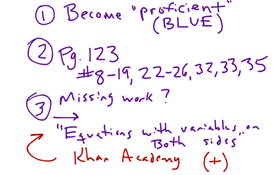 ① Become "proficient"
(BLUE)
② Pg. 123
#8-19, 22-26, 32, 33, 35
③ Missing work?
"Equations with variables on
Both sides"
Khan Academy (+)